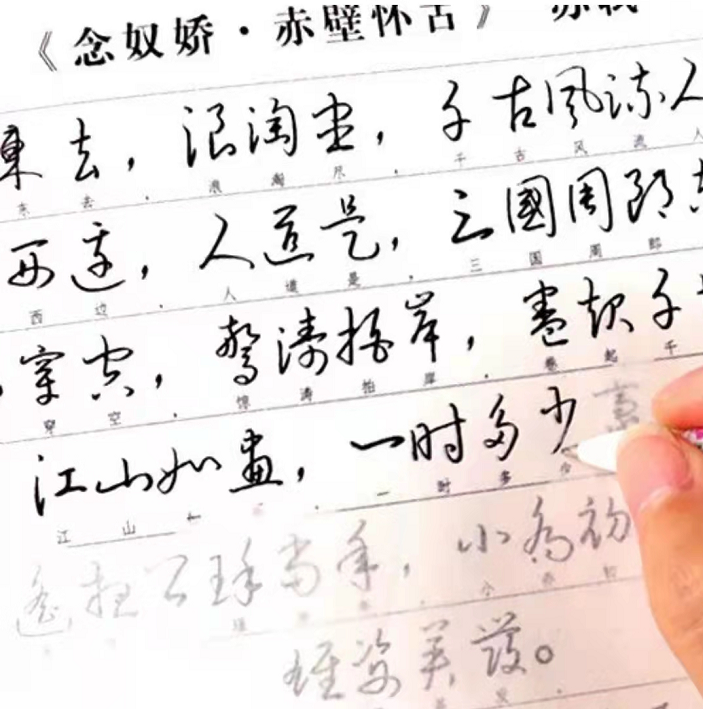 《念奴娇·赤壁怀古》 苏轼
東去，浪淘尽，千古風流人
东去，浪淘尽，千古风流人
西边，人道是，三國周郎
西边，人道是，三国周郎
穿空，驚涛拍岸，卷起千
穿空，惊涛拍岸，卷起千
江山如畫，一时多少豪
江山如，一时多少
遥想公瑾当年，小乔初
瑾当年，小乔初
雄姿英发。
英发。